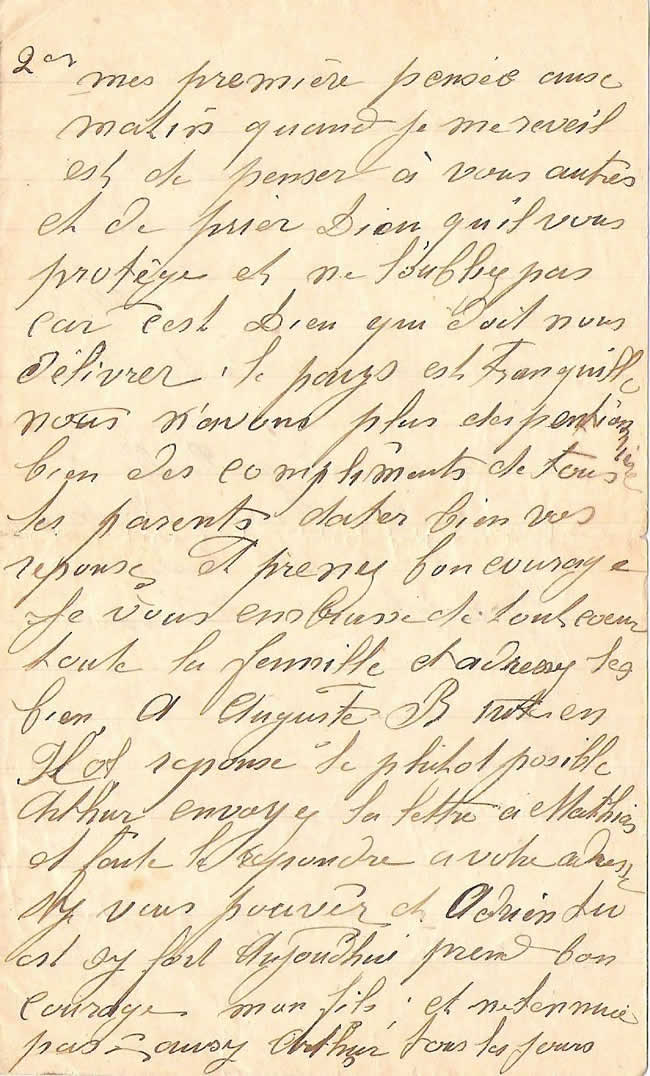 2
mes première pensée aux
matins quand je me reveil
est de penser à vous autres
et de prier Dieu qu'il vous
protège et ne l'oubliez pas
car c'est Dieu qui doit nous
délivrer. le pays est tranquille
nous n'avons plus des pentionnière
bien des compliments de tous
les parents dater bien vos
reponses Et prenez bon courage
Je vous embrasse de tout coeur
toute la famille et adressez les
bien A Auguste B en
reponse le plutot posible
Arthur envoyez la lettre a Mathias
et faite le repondre a votre adresse
sy vous pouvêr et Adrien tu
est sy fort Aujoud'hui prend bon
courage mon fils; et ne t'ennuie
pas aussy Arthur tous les jours